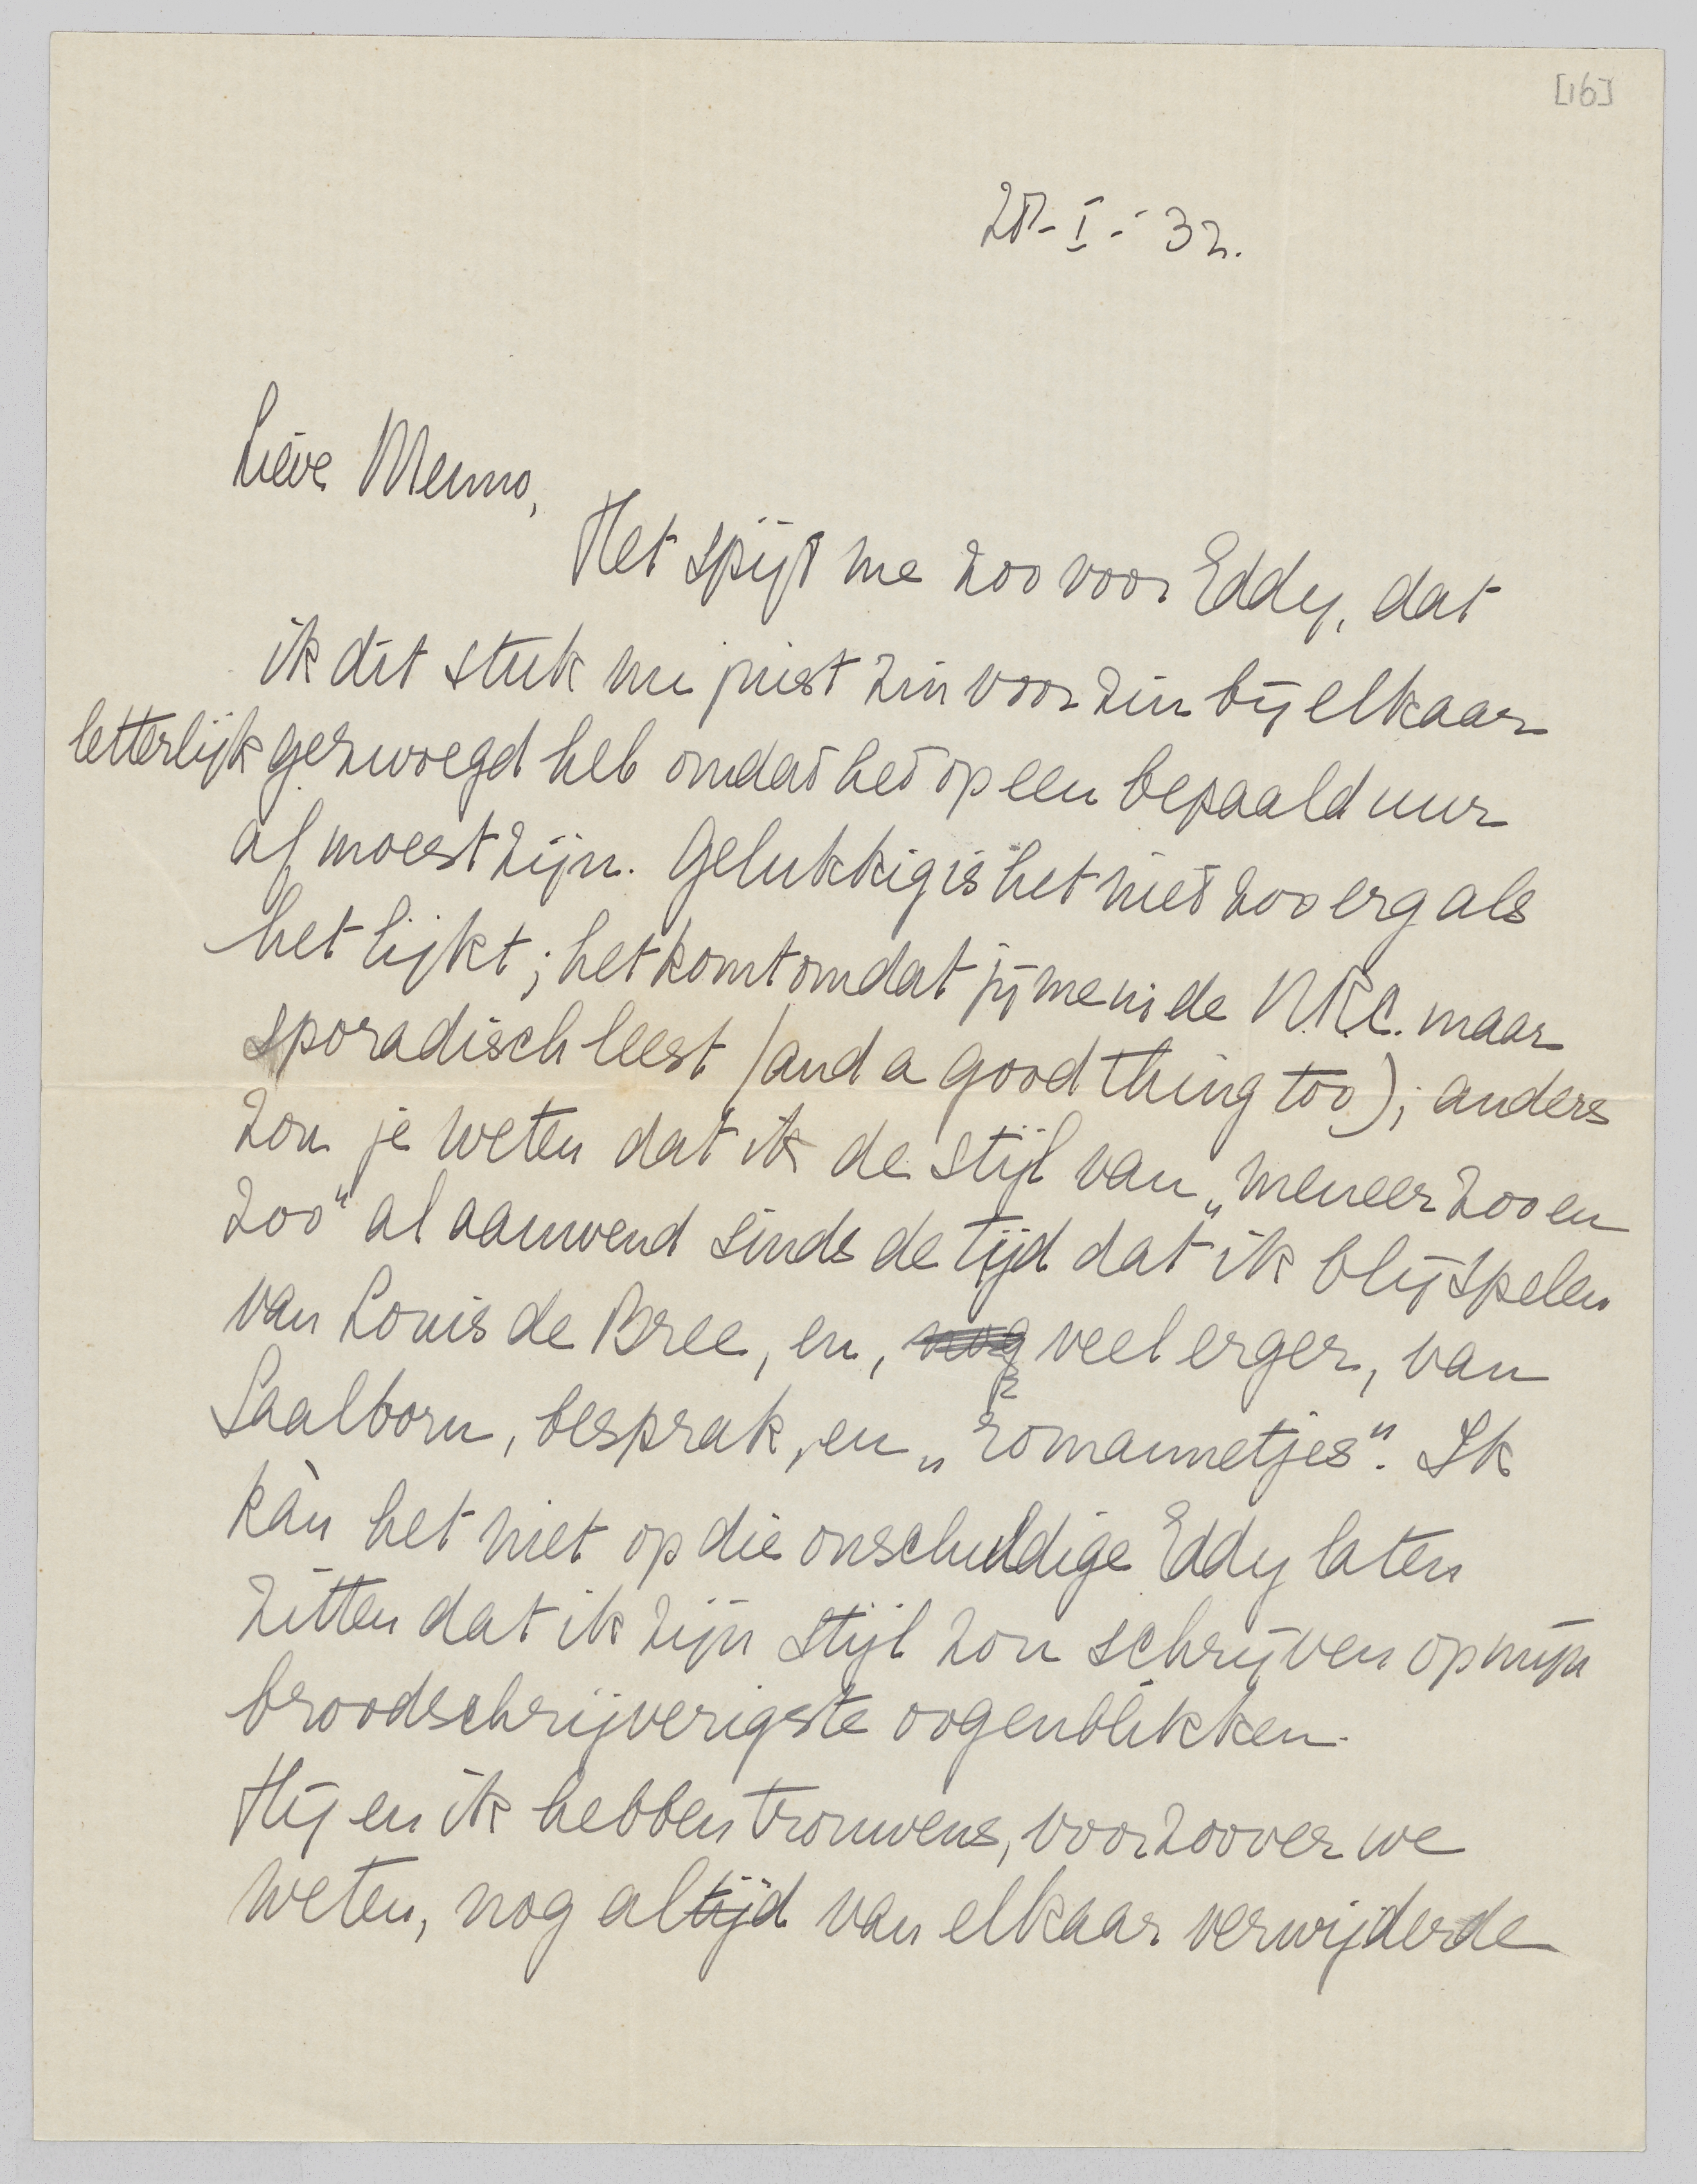 [16]
28-I-'32.
Lieve Menno,
Het spijt me zoo voor Eddy, dat
ik dit stuk nu juist zin voor zin bij elkaar
letterlijk gezwoegd heb omdat het op een bepaald uur
af moest zijn. Gelukkig is het niet zoo erg als
het lijkt; het komt omdat jij me in de N.R.C. maar
sporadisch leest (and a good thing too); anders
zou je weten dat ik de stijl van „meneer zoo en
zoo" al aanwend sinds de tijd dat ik blijspelen
van Louis de Bree, en, nog veel erger, van
Saalborn, besprak, en „romannetjes". Ik
kàn het niet op die onschuldige Eddy laten
zitten dat ik zijn stijl zou schrijven op mijn
broodschrijverigste oogenblikken.
Hij en ik hebben trouwens, voorzoover we
weten, nog altijd van elkaar verwijderde